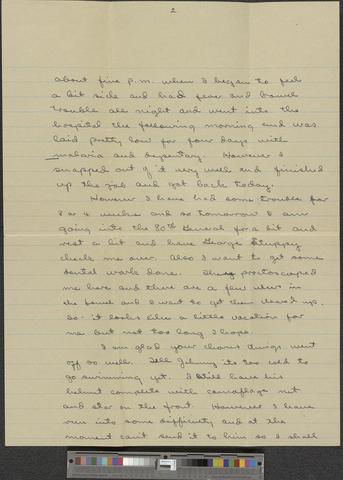 2
about five p.m. when I began to feel
a bit sick and had fever and bowel
trouble all night and went into the
hospital the following morning and was
laid pretty low for four days with
malaria and dysentary. However I
snapped out of it very well and finished
up the job and got back today.
However I have had some trouble for
3 or 4 weeks and so tomorrow I am
going into the 80th General for a bit and
rest a bit and have George
check me over. Also I want to get some
dental work done. They proctoscoped
me here and there are a few ulcers in
the bowel and I want to get them cleared up.
So - it looks like a little vacation for
me but not too long I hope.
I am glad your chorus things went
off so well. Tell Johnny its too cold to
go swimming yet. I still have his
helmet complete with camoflage net
and star on the front. However I have
run into some difficulty and at the
moment can't send it to him so I shall